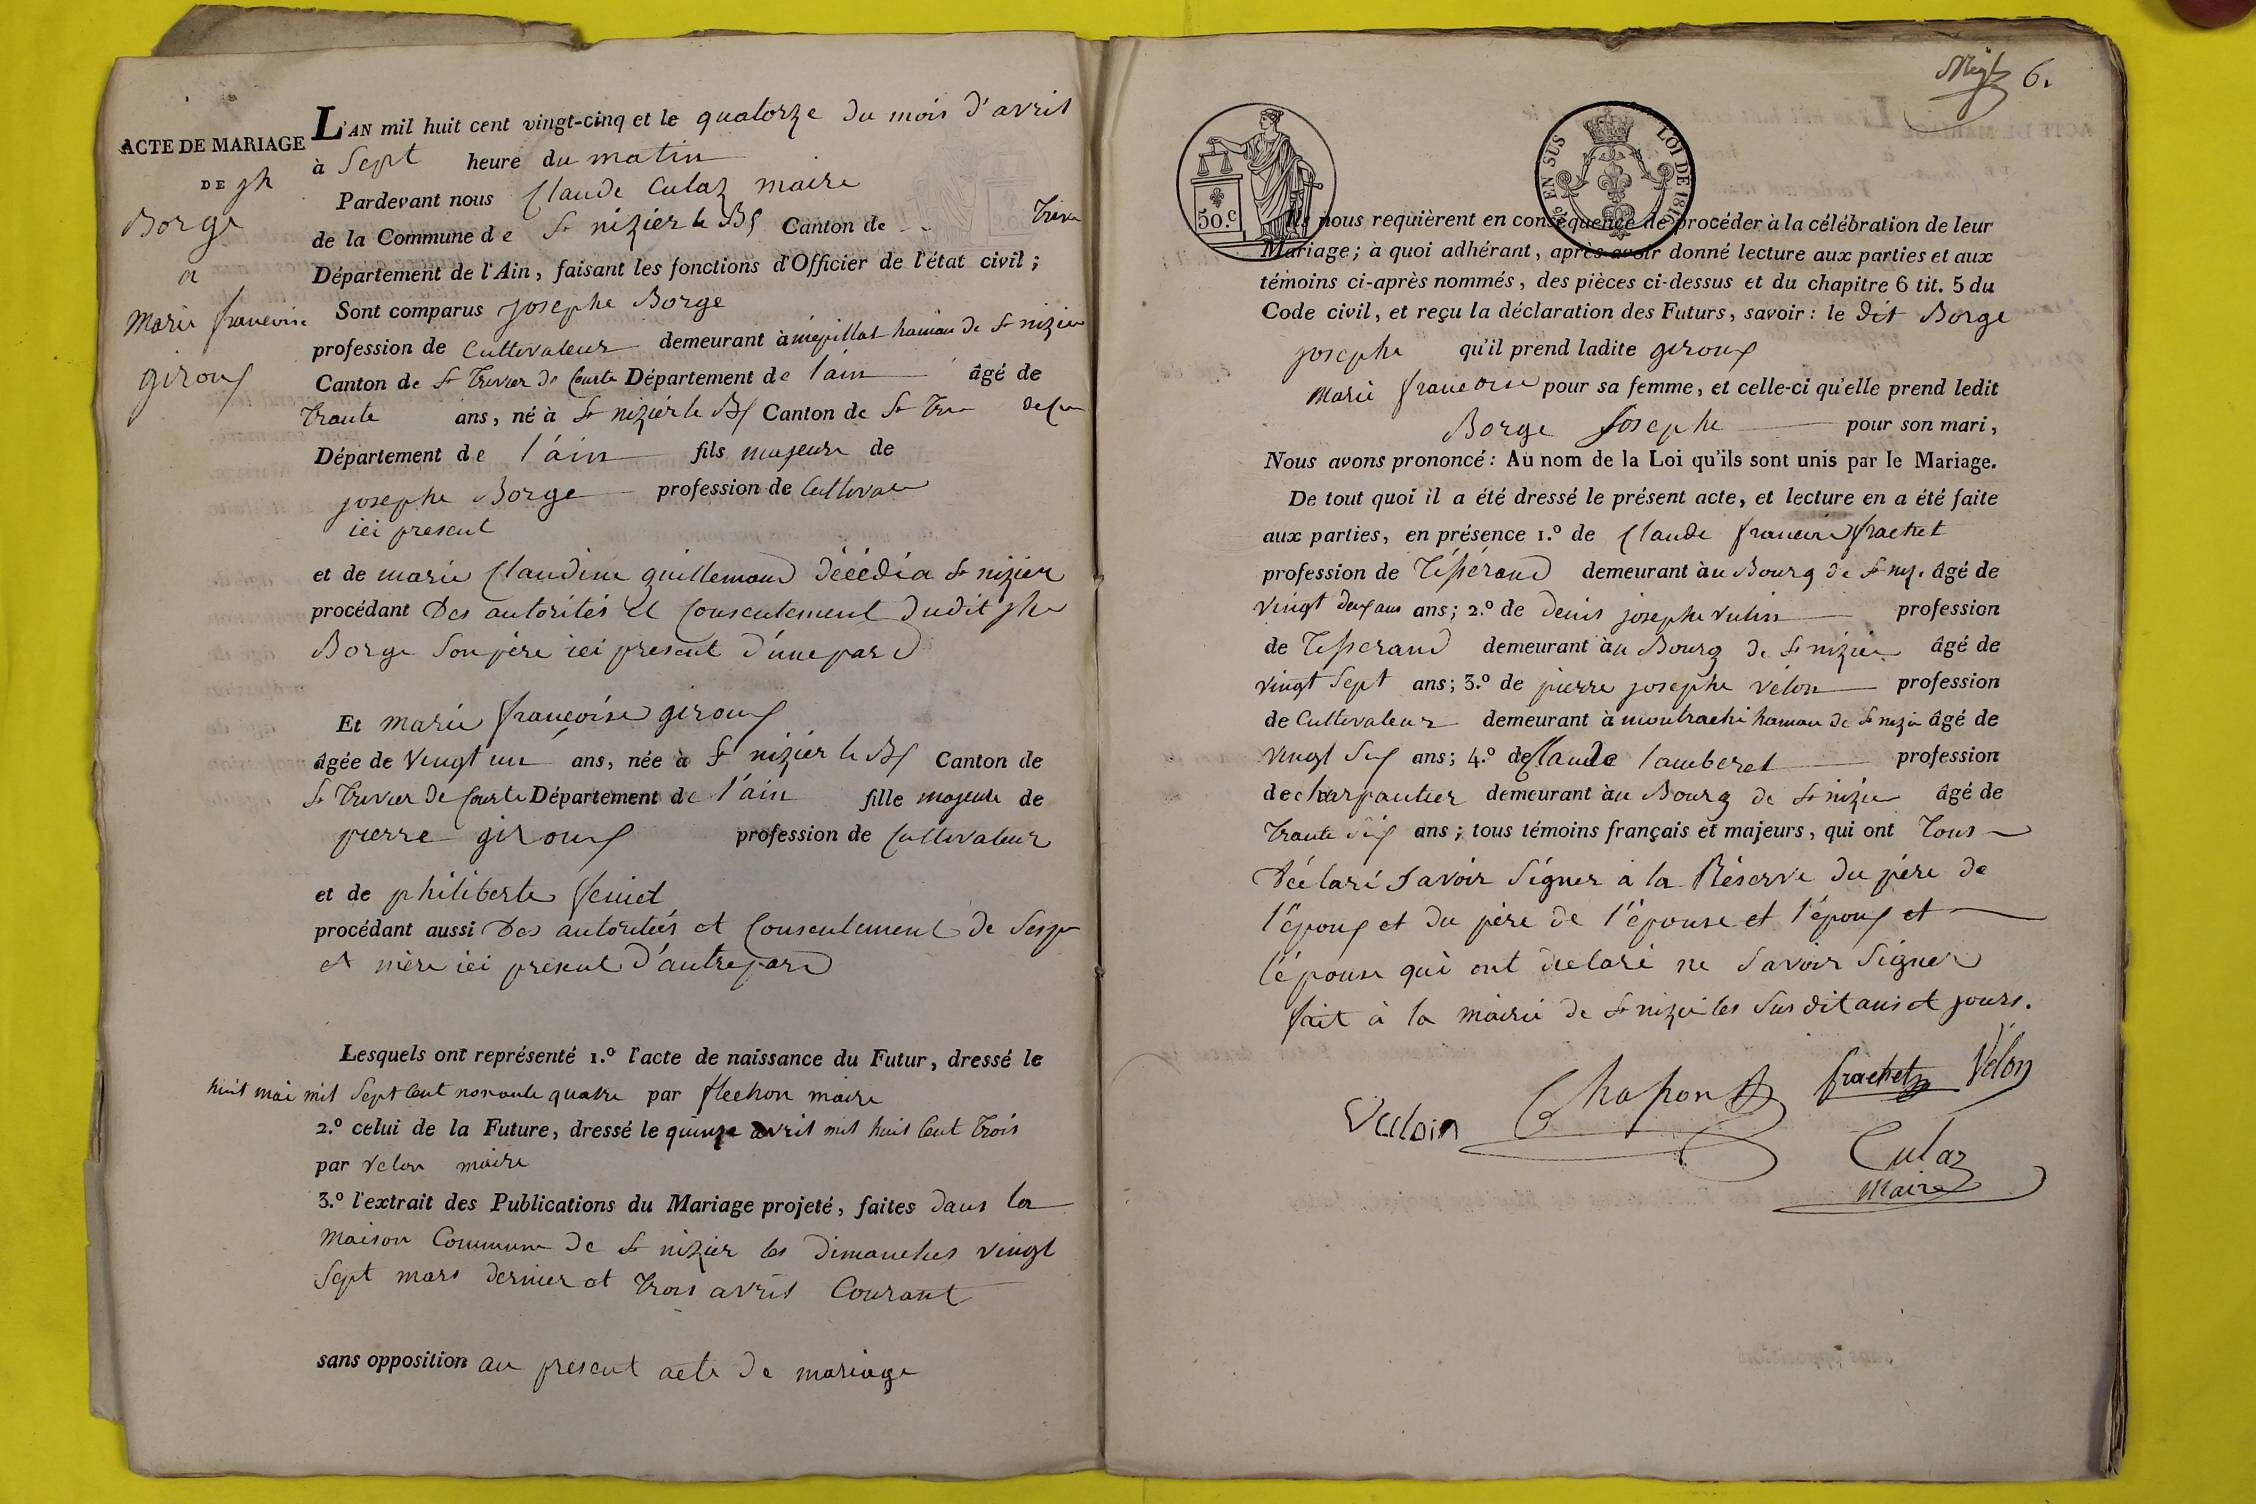 ACTE DE MARIAGE
DE jh
Borge
a
Marie francoise
giroux
L'AN mil huit cent vingt-cinq et le quatorze du mois d'avril
à Sept heure du matin
Pardevant nous Claude Culaz maire
de la Commune de St nizier le Bx Canton de
Département de l'Ain, faisant les fonctions d'Officier de l'état civil;
Sont comparus josephe Borge
profession de Cultivateur demeurant à mépillat hamau de St nizier
Canton de St Trivier de Courte Département de l'ain âgé de
Trante ans, né à St nizier le Bx Canton de St Triv de Cou
Département de l'áin fils majeure de
josephe Borge profession de Cultivateu
ici present
et de marie Claudine guillemaud décédéa St nizier
procédant Des autorités et Consentement dudit jhe
Borge Son père ici present d'une pard
Et marie francoise giroux
âgée de Vingt un ans, née à St nizier le Bx Canton de
St Trivier de Courte Département de l'áin fille majeure de
pierre giroux profession de Cultivateur
et de philiberte feuiet
procédant aussi Des autorités et Consentement de Sesp
et mère ici present d'autre pard
Lesquels ont représenté 1.º l'acte de naissance du Futur, dressé le
huit mai mil Sept Cent nonante quatre par flechon maire
2.º celui de la Future, dressé le quinze avril mil huit Cent Trois
par velon maire
3.º l'extrait des Publications du Mariage projeté, faites dans la
maison Commune de St nizier les dimanches vingt
Sept mars dernier et Trois avril Courant
sans opposition au present acte de mariage
6.
50.C
EN SUS
LOI DE 1816
Ils nous requièrent en conséquence de procéder à la célébration de leur
Mariage; à quoi adhérant, après avoir donné lecture aux parties et aux
témoins ci-après nommés, des pièces ci-dessus et du chapitre 6 tit. 5 du
Code civil, et reçu la déclaration des Futurs, savoir: le dit Borge
josephe qu'il prend ladite giroux
Marie francoise pour sa femme, et celle-ci qu'elle prend ledit
Borge Josephe pour son mari,
Nous avons prononcé: Au nom de la Loi qu'ils sont unis par le Mariage.
De tout quoi il a été dressé le présent acte, et lecture en a été faite
aux parties, en présence 1.º de Claude francois frachet
profession de Tisserand demeurant àu Bourg de St niz. âgé de
vingt deux ans ans; 2.º de denis josephe vulin profession
de Tisserand demeurant àu Bourg de St nizier âgé de
vingt Sept ans; 3.º de pierre josephe vélon profession
de Cultivateur demeurant à montrachi hamau de St nizie âgé de
vingt Six ans; 4.º de Claude lamberet profession
de charpantier demeurant àu Bourg de St nizie âgé de
Trante Six ans; tous témoins français et majeurs, qui ont Tous
déclaré Savoir Signer a la Réserve du père de
l'époux et du père de l'épouse et l'époux et
l'épouse qui ont declaré ne Savoir Signer
fait à la mairie de St nizie les Sus dit ans et jours.
Chapon
frachet
Velon
Vulain
Culaz
Maire